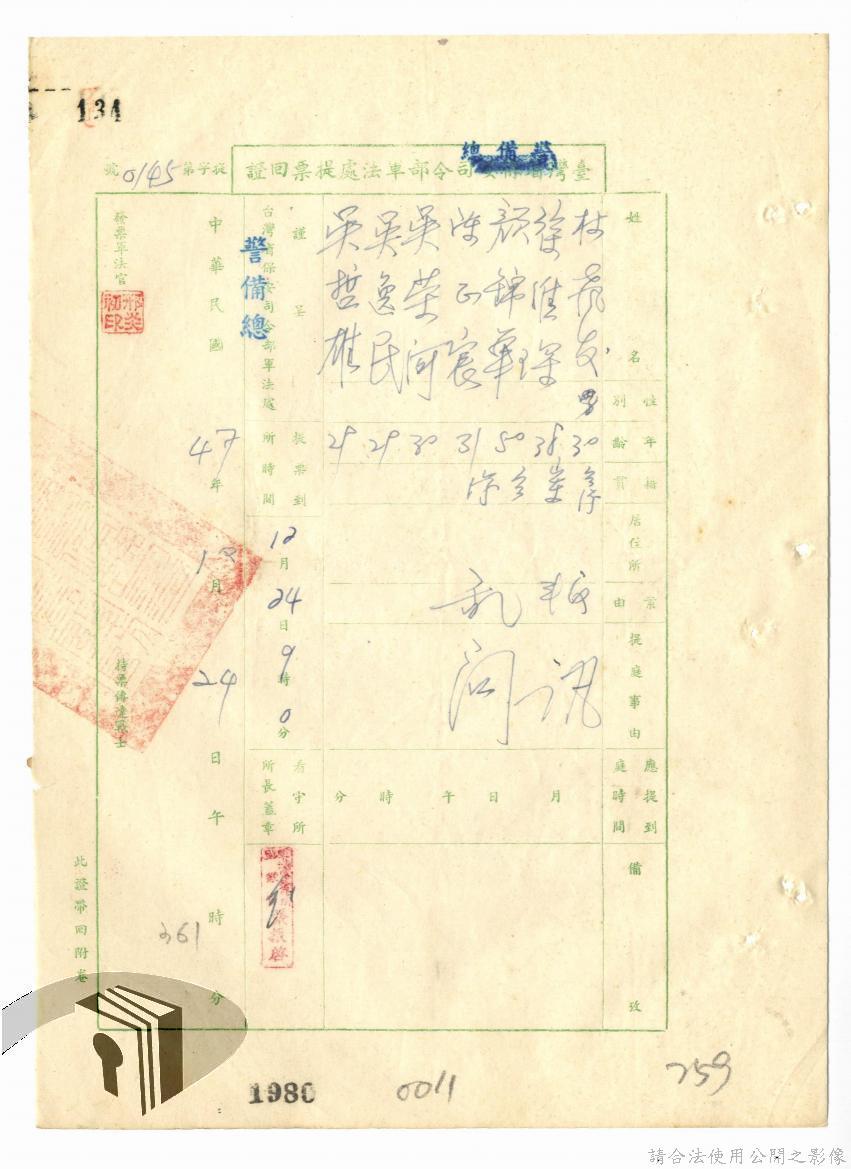 134
臺灣省保安司令部軍法處提票回證
警備總
提字第0145號
姓名
性別
年齡
籍貫
居住所
案由
提庭事由
應提到庭時間
備攷
林
男
30
徐
38
顏錦華
50
陳正宸
31
吳榮河
30
吳逸民
29
吳哲雄
29
叛亂
訊問
月 日 午 時 分
謹呈
台灣省保安司令部軍法處
警備總
提票到所時間
12月24日9時0分
看守所所長蓋章
中華民國47年12月24日午時分
發票軍法官
持票傳達戰士
此證帶回附卷
361
1980
0011
259
請合法使用公開之影像